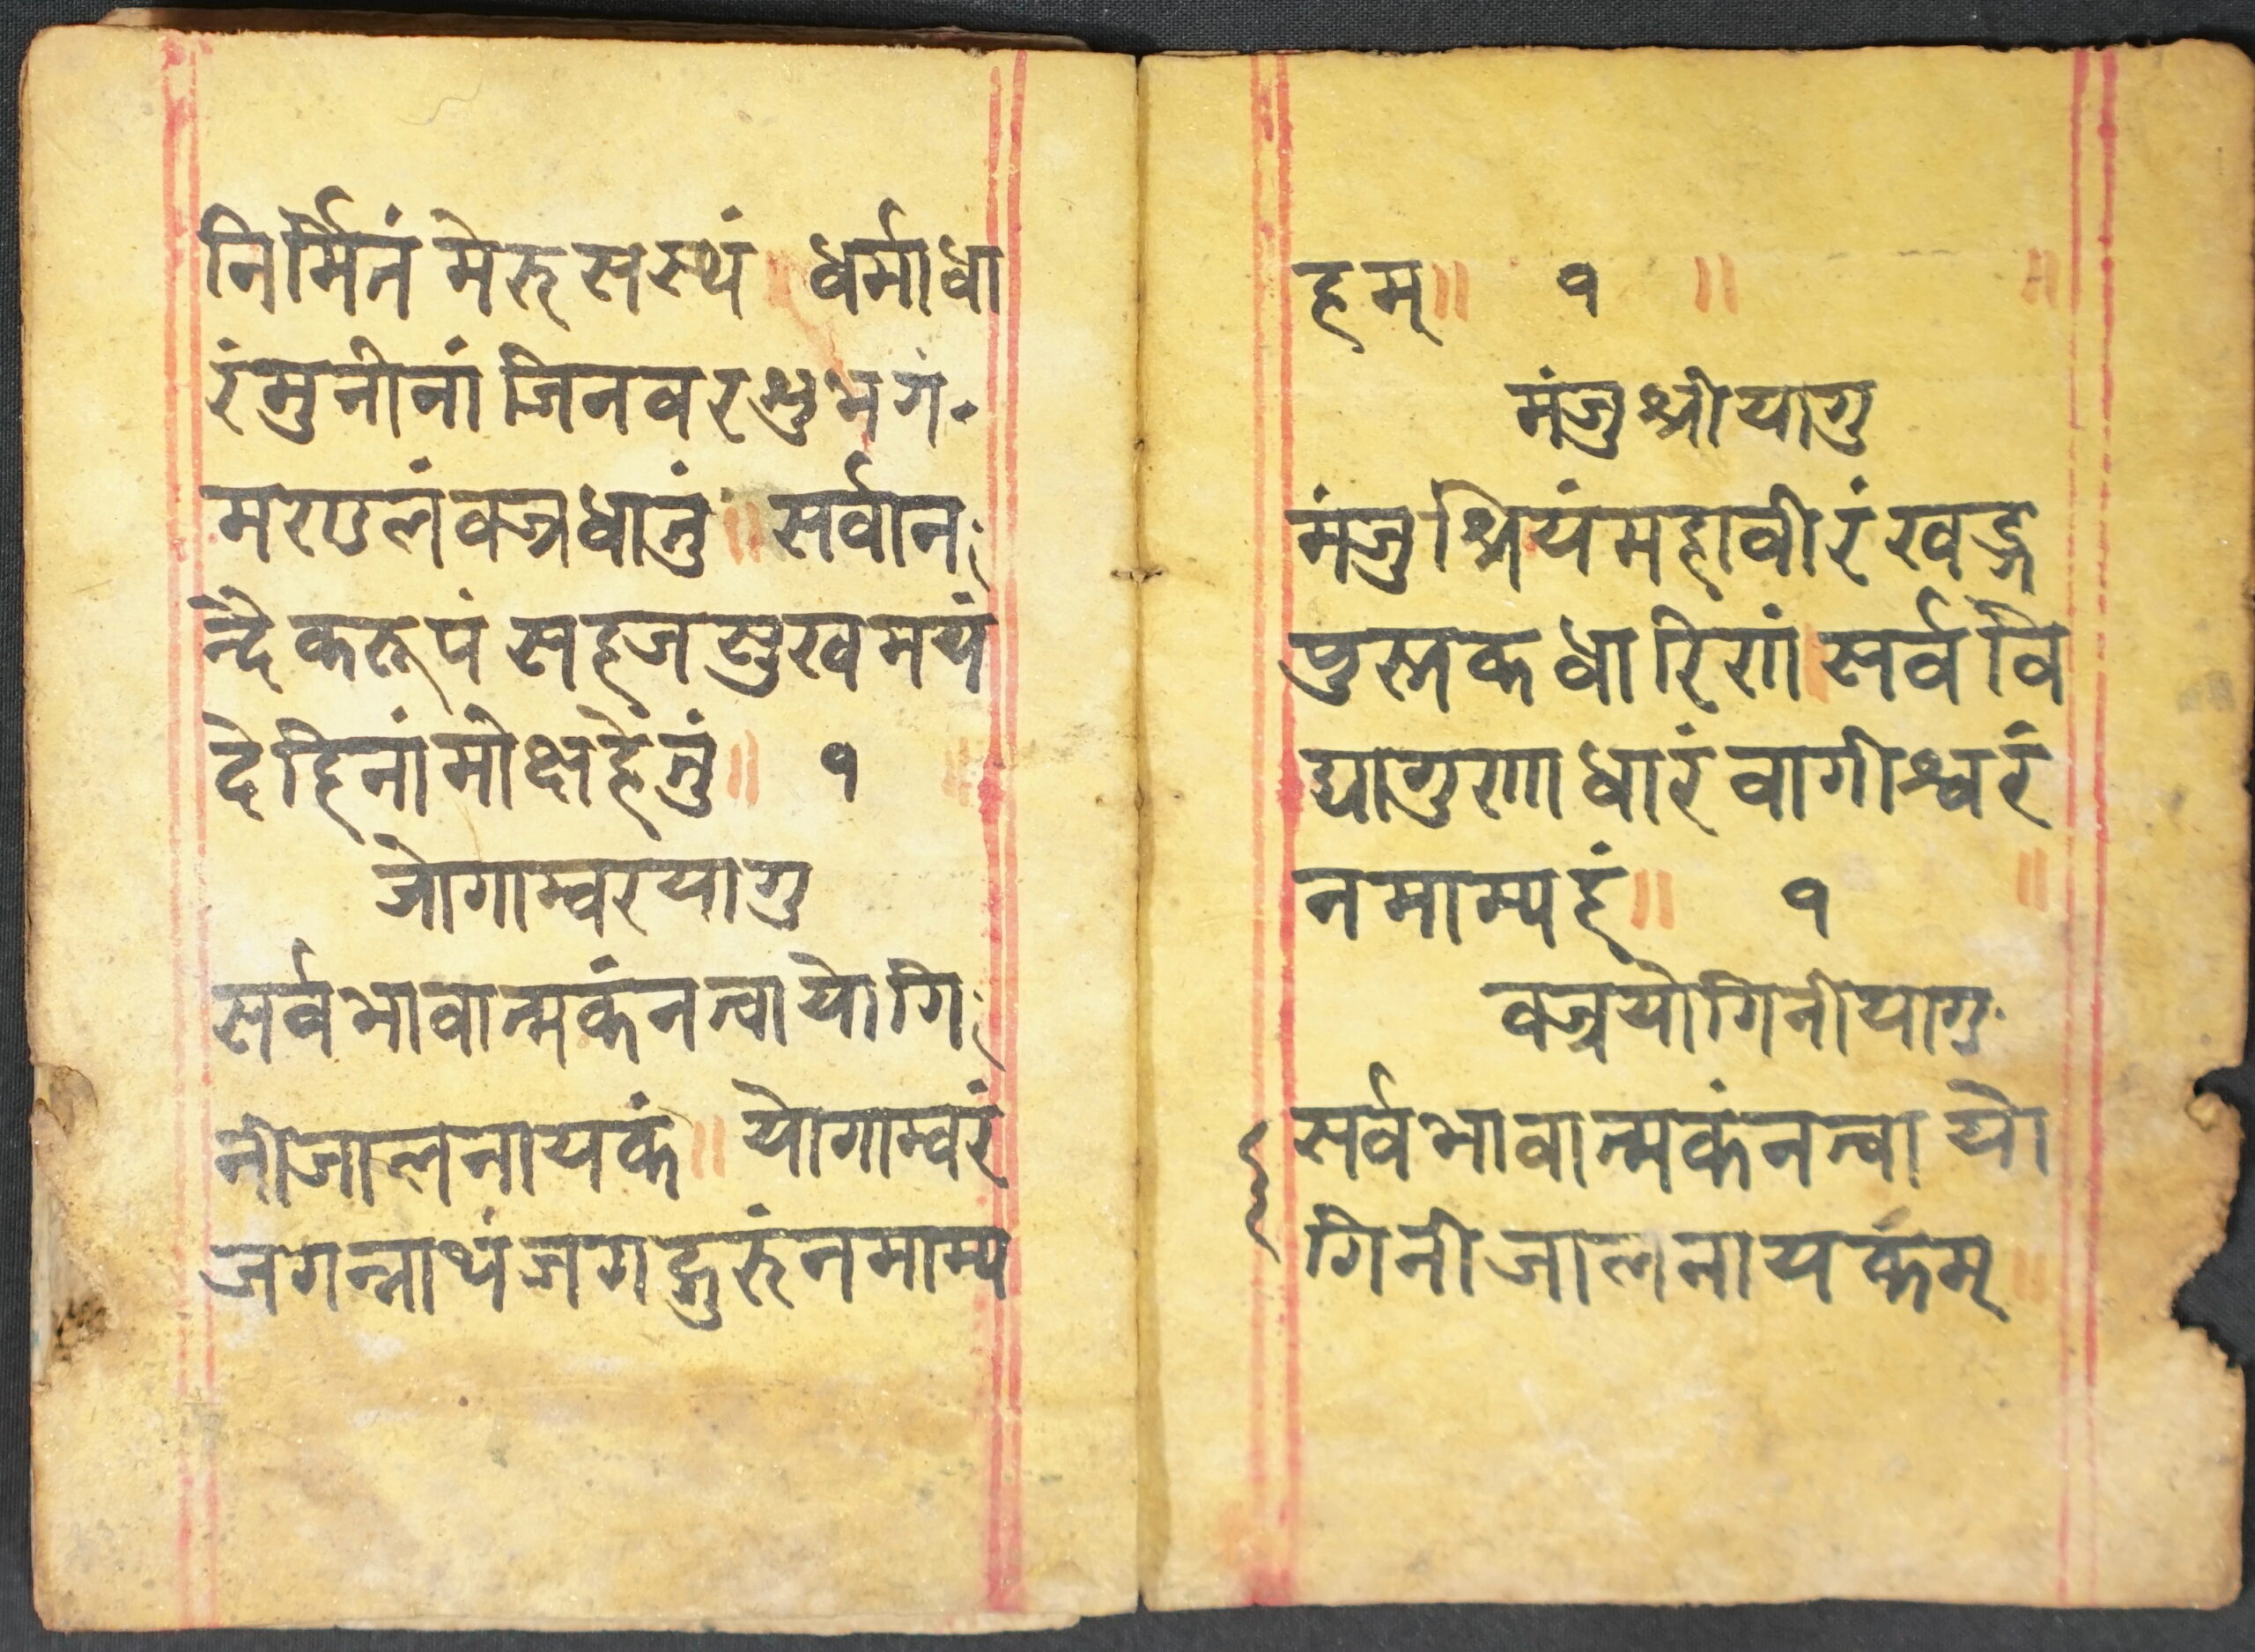 निर्मितं मेरुसस्थं ॥ धर्माधा
रं मुनीनां जिनवरशुभगं
मण्डलं वज्रधातुं ॥ सर्वान
न्दैकरूपं सहजसुखमयं
देहिनां मोक्षहेतुं ॥ १ ॥
जोगाम्वरयागु
सर्वभावात्मकं नत्वा योगि
नीजालनायकं ॥ योगाम्वरं
जगन्नाथं जगद्गुरुं नमाम्य
हम् ॥ १ ॥ ॥
मंजुश्रीयागु
मंजुश्रियं महावीरं खड्ग
पुस्तकधारिणं । सर्ववि
द्यागुणाधारं वागीश्वरं
नमाम्यहं ॥ १ ॥
वज्रयोगिनीयागु
सर्वभावात्मकं नत्वा यो
गिनीजालनायकंम् ॥